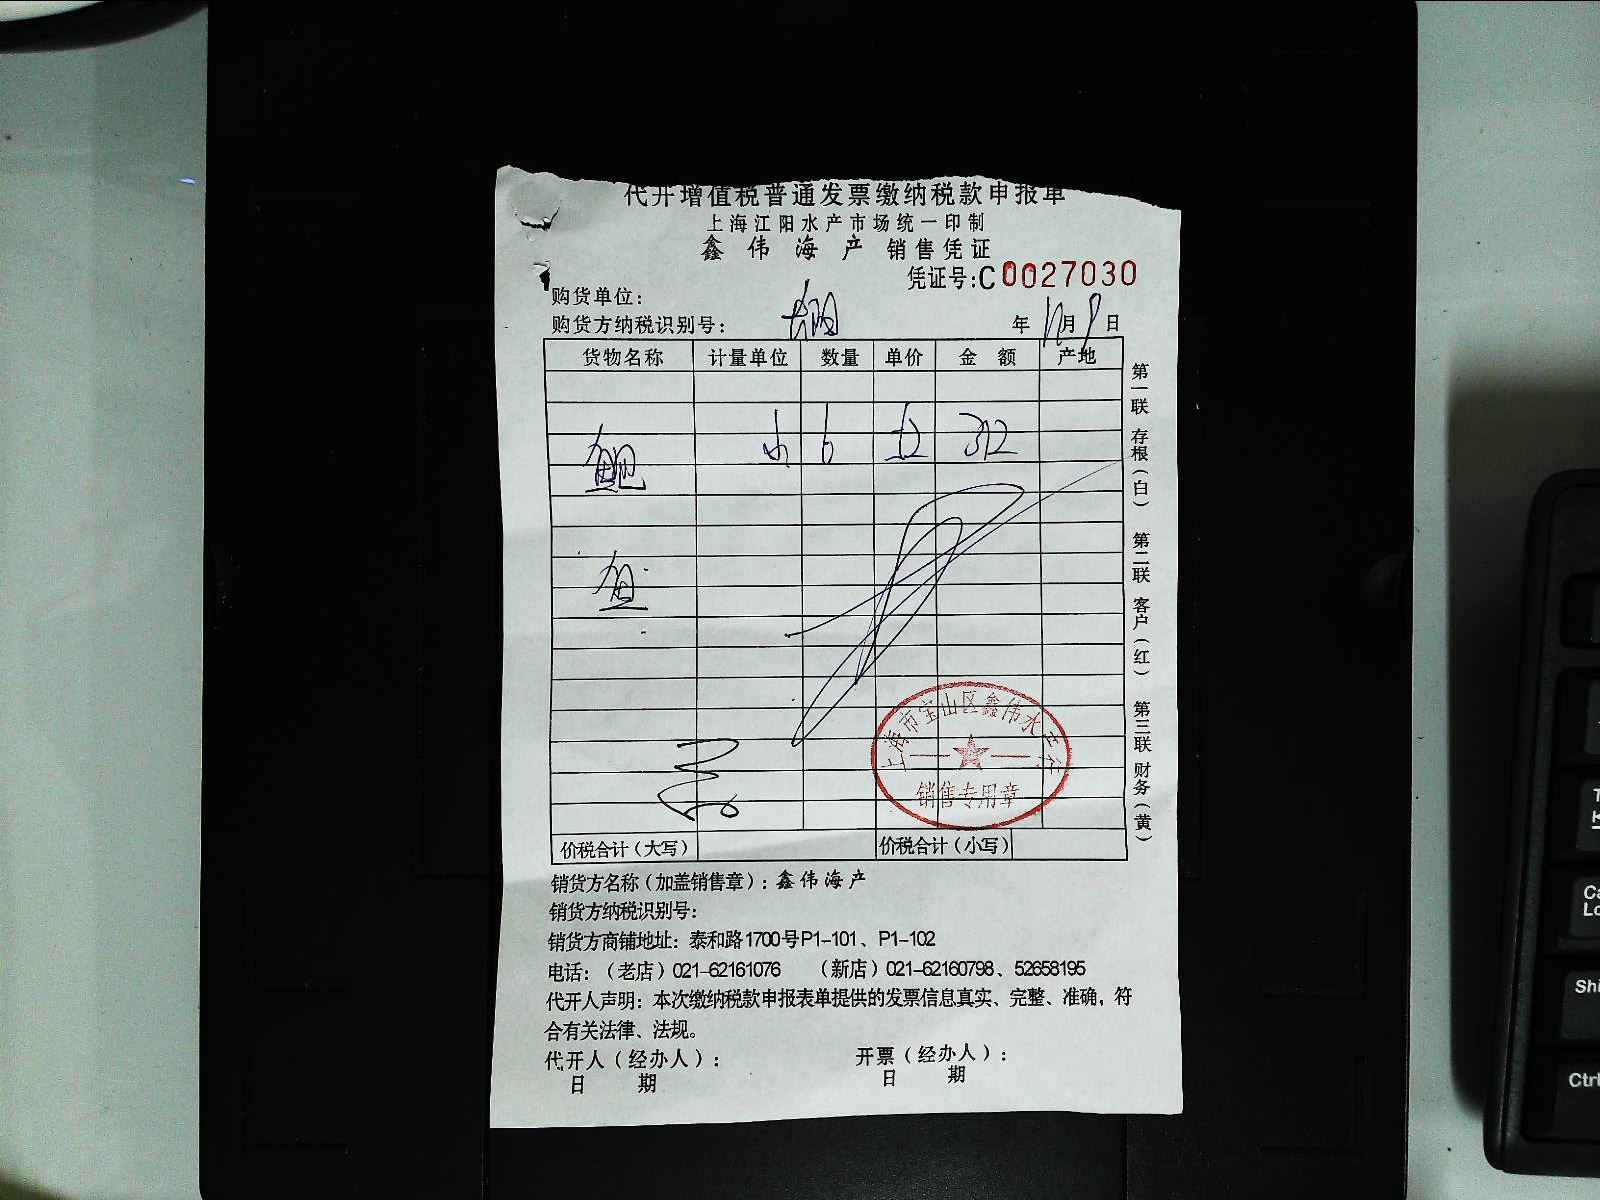 代开增值税普通发票缴纳税款申报单
上海江阳水产市场统一印制
鑫伟海产销售凭证
凭证号:C0027030
购货单位:
购货方纳税识别号: 年 11月9日
货物名称 计量单位 数量 单价 金额 产地
鲍 6 52 312
鱼
第一联 存根(白) 第二联 客户(红) 第三联 财务(黄)
上海市宝山区鑫伟水
销售专用章
价税合计(大写) 价税合计(小写)
销货方名称(加盖销售章): 鑫伟海产
销货方纳税识别号:
销货方商铺地址: 泰和路1700号P1-101、P1-102
电话:(老店)021-62161076 (新店)021-62160798、52658195
代开人声明: 本次缴纳税款申报表单提供的发票信息真实、完整、准确, 符
合有关法律、法规。
代开人(经办人): 开票(经办人):
日期 日期
Shi
Ctrl